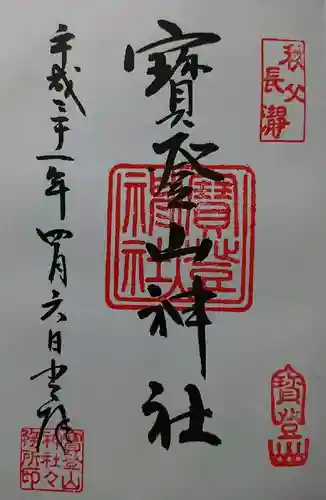 秩父
長瀞
寳登山神社
寳登山
神社
寳登山
平成三十一年四月六日奉拝
寳登山
神社々
務所印